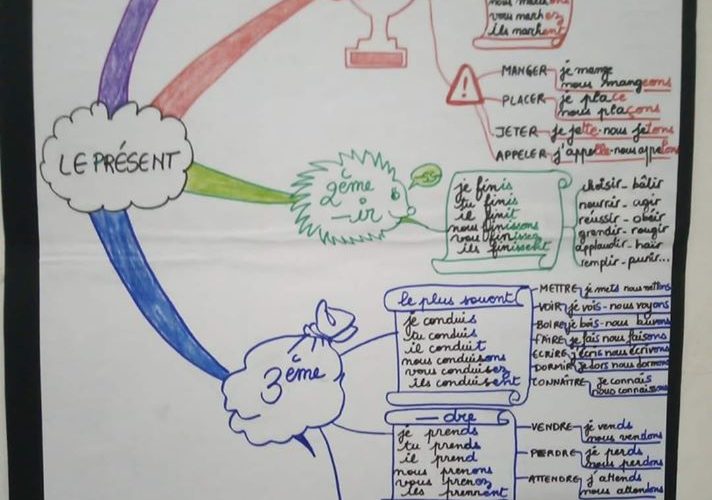 nous marchons
vous marchez
ils marchent
MANGER
je mange
nous mangeons
PLACER
je place
nous plaçons
JETER
je jette - nous jetons
APPELER
j'appelle - nous appelons
LE PRÉSENT
2ème
-ir
-SS-
je finis
tu finis
il finit
nous finissons
vous finissez
ils finissent
choisir - bâtir
nourrir - agir
réussir - obéir
grandir - rougir
applaudir - haïr
remplir - punir...
3ème
le plus souvent
je conduis
tu conduis
il conduit
nous conduisons
vous conduisez
ils conduisent
METTRE je mets nous mettons
VOIR je vois - nous voyons
BOIRE je bois - nous buvons
FAIRE je fais nous faisons
ÉCRIRE j'écris nous écrivons
DORMIR je dors nous dormons
CONNAÎTRE je connais
nous connaissons
-dre
je prends
tu prends
il prend
nous prenons
vous prenez
ils prennent
VENDRE je vends
nous vendons
PERDRE je perds
nous perdons
ATTENDRE j'attends
nous attendons